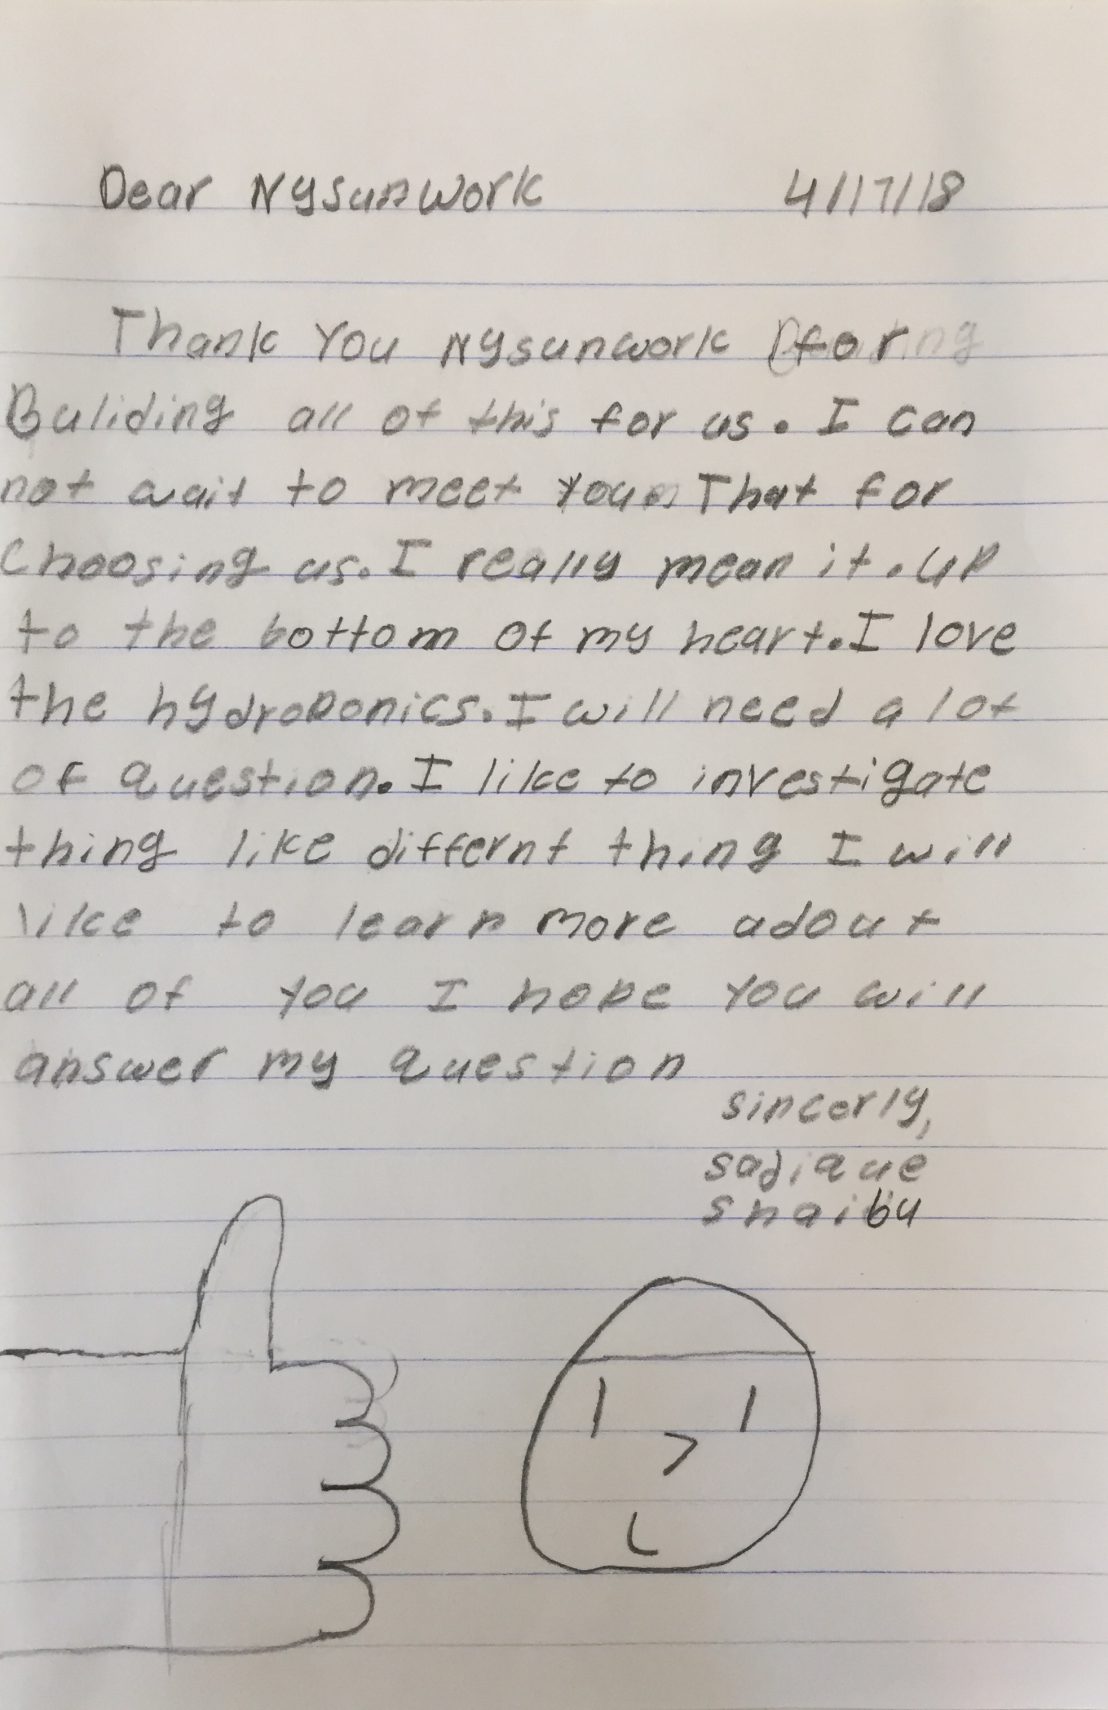 Dear Nysunwork 4/17/18
Thank You Nysunwork for
Buliding all of this for us. I can
not wait to meet you. That for
Choosing us. I really mean it. up
to the bottom of my heart. I love
the hydroponics. I will need a lot
of question. I like to investigate
thing like differnt thing I will
like to learn more adout
all of you I hope you will
answer my question
sincerly,
sadique
shaibu